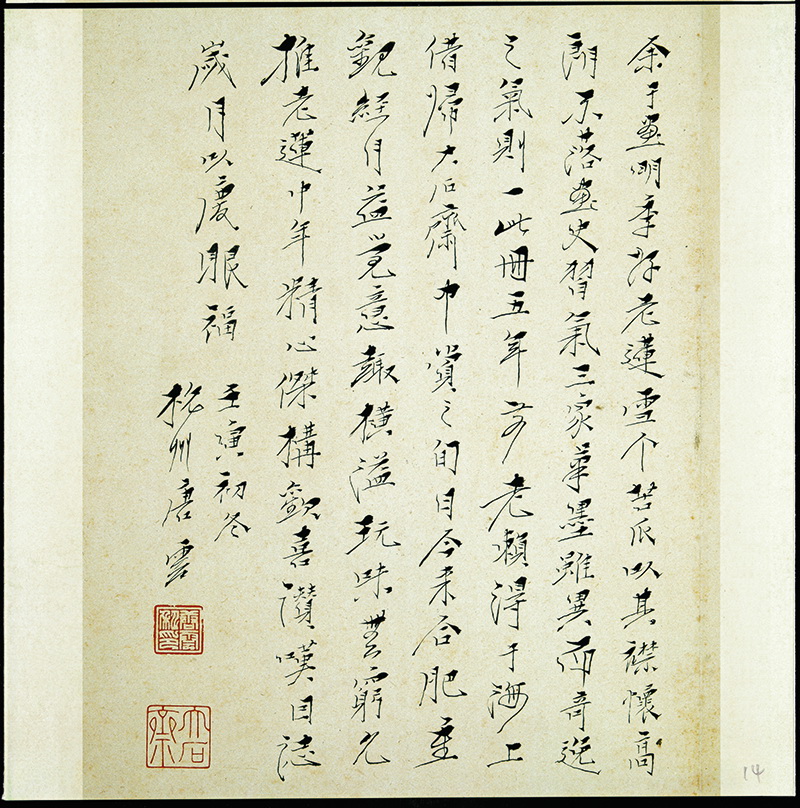 余于畫明季好老蓮雪个苦瓜以其襟懷高
朗不落畫史習氣三家筆墨雖異而奇逸
之氣則一此冊五年前老賴得于海上
借歸大石齋中賞之旬日今來合肥重
觀經月益覺意趣橫溢玩味無窮允
推老蓮中年精心傑構歡喜讚嘆因誌
歲月以慶眼福
壬寅初冬
杭州唐雲
大石齋
14